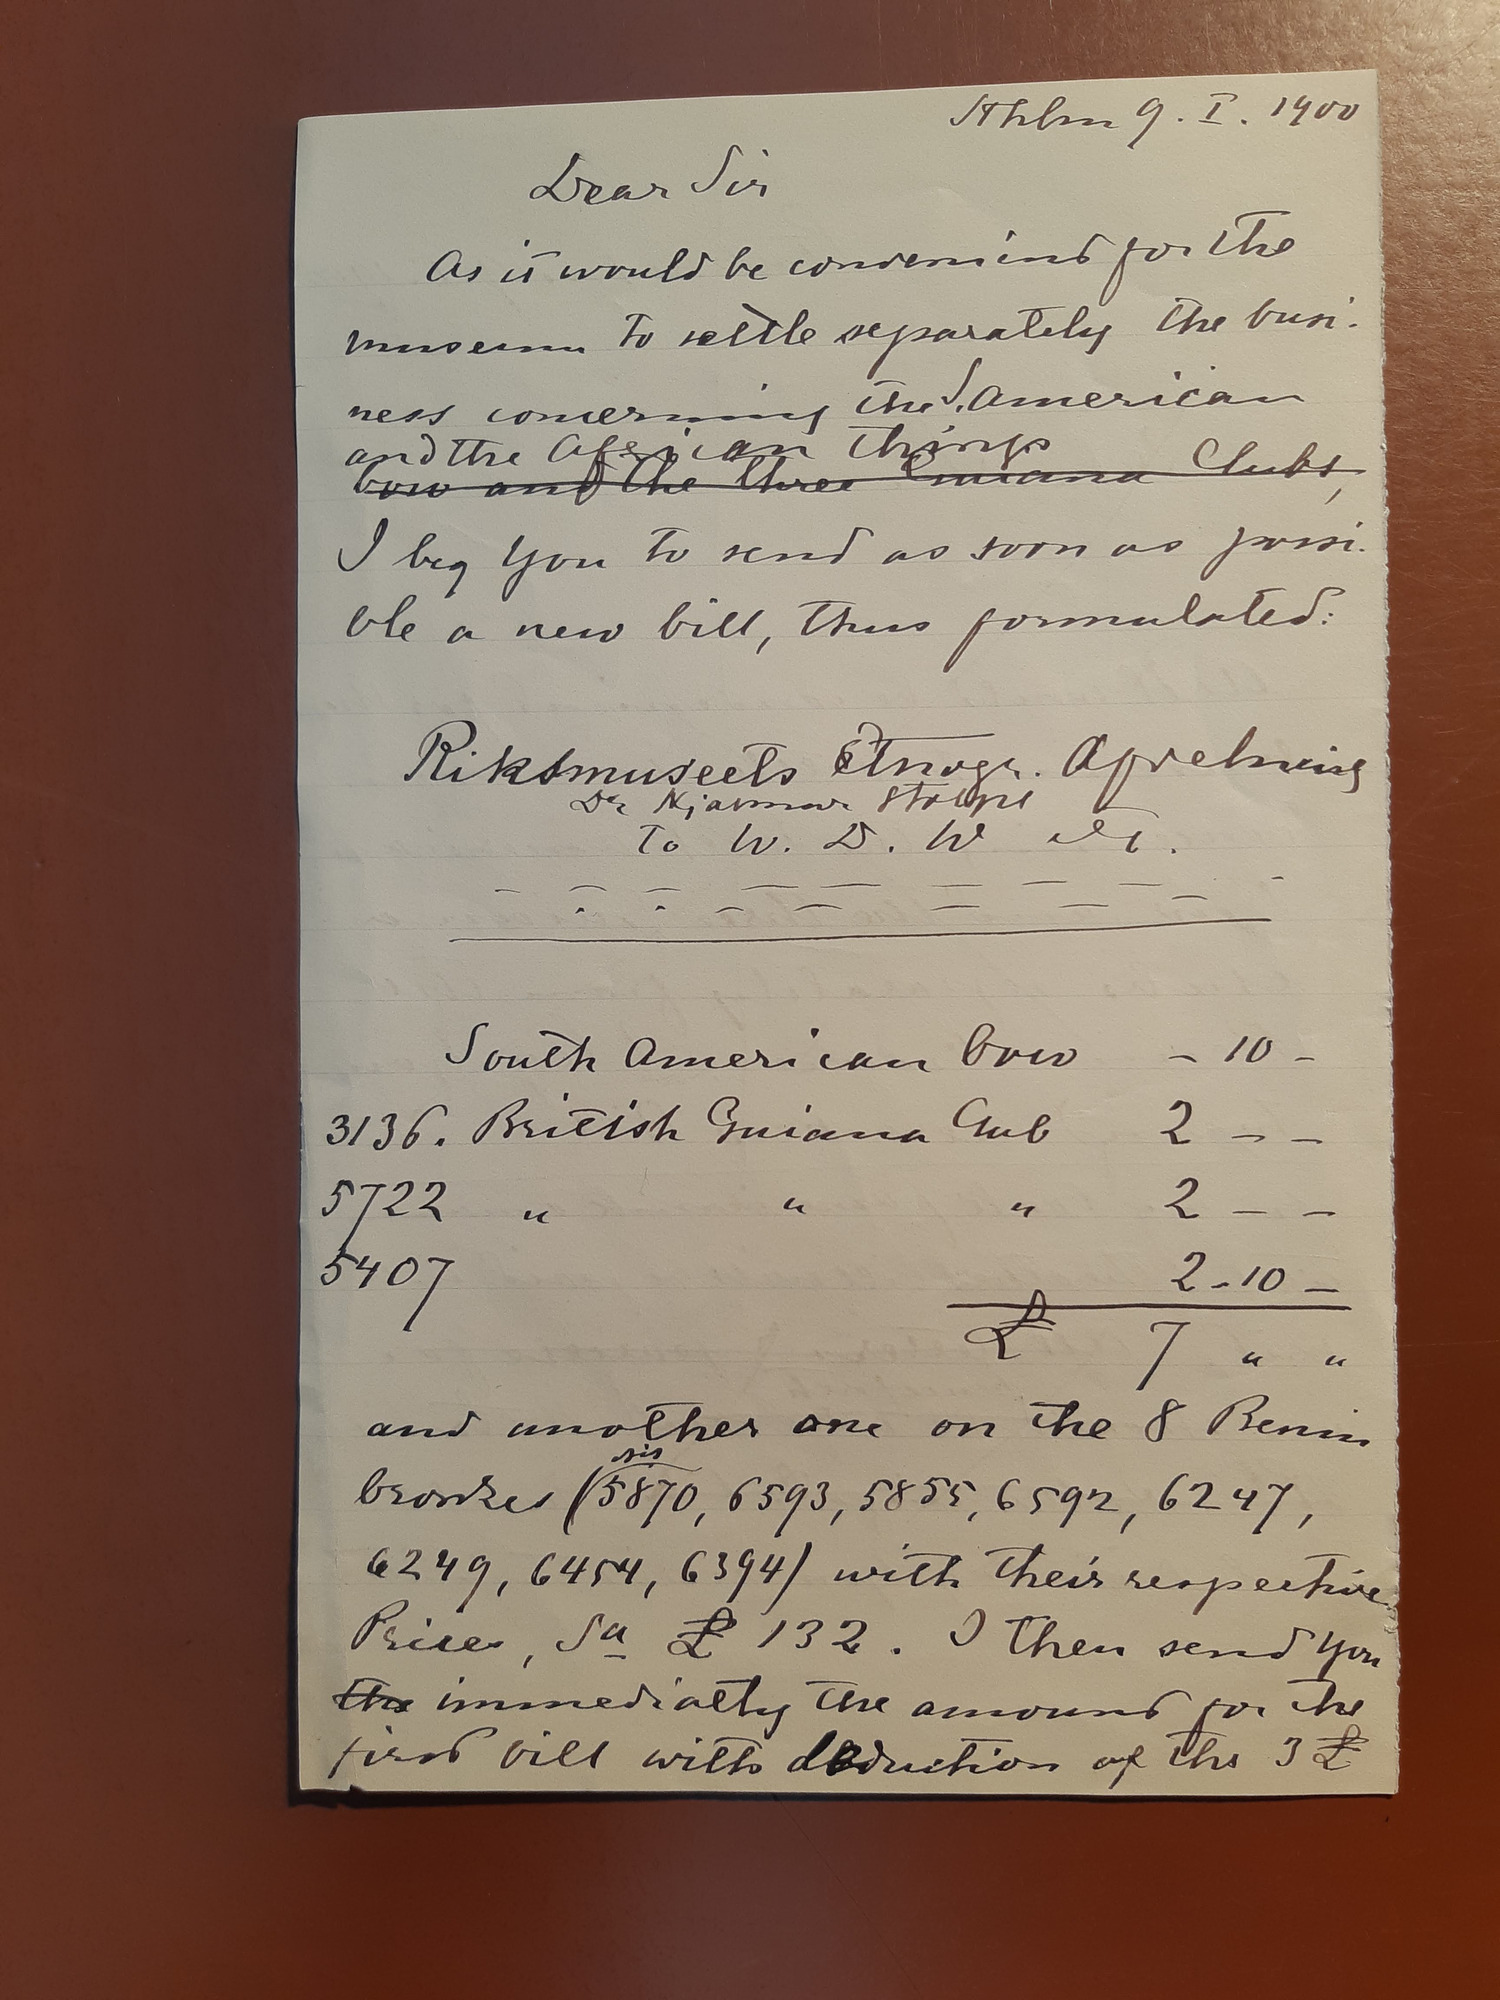 Sthlm 9. I. 1900
Dear Sir
As it would be convenient for the
museum to settle separately the busi-
ness concerning the S. American
and the African things
bow and the three Guiana Clubs,
I beg You to send as soon as possi-
ble a new bill, thus formulated:
Riksmuseets Etnogr. Afdelning
Dr Hjalmar Stolpe
To W. D. W etc.
South American bow - 10 -
3136. British Guiana Club 2 - -
5722 " " " 2 - -
5407 2 - 10 -
£ 7 " "
and another one on the 8 Benin
bronzes (5870, 6593, 5855, 6592, 6247,
6249, 6454, 6394) with their respective
Prices, Sa £ 132. I then send You
the immediatly the amount for the
first bill with deduction of the 3 £